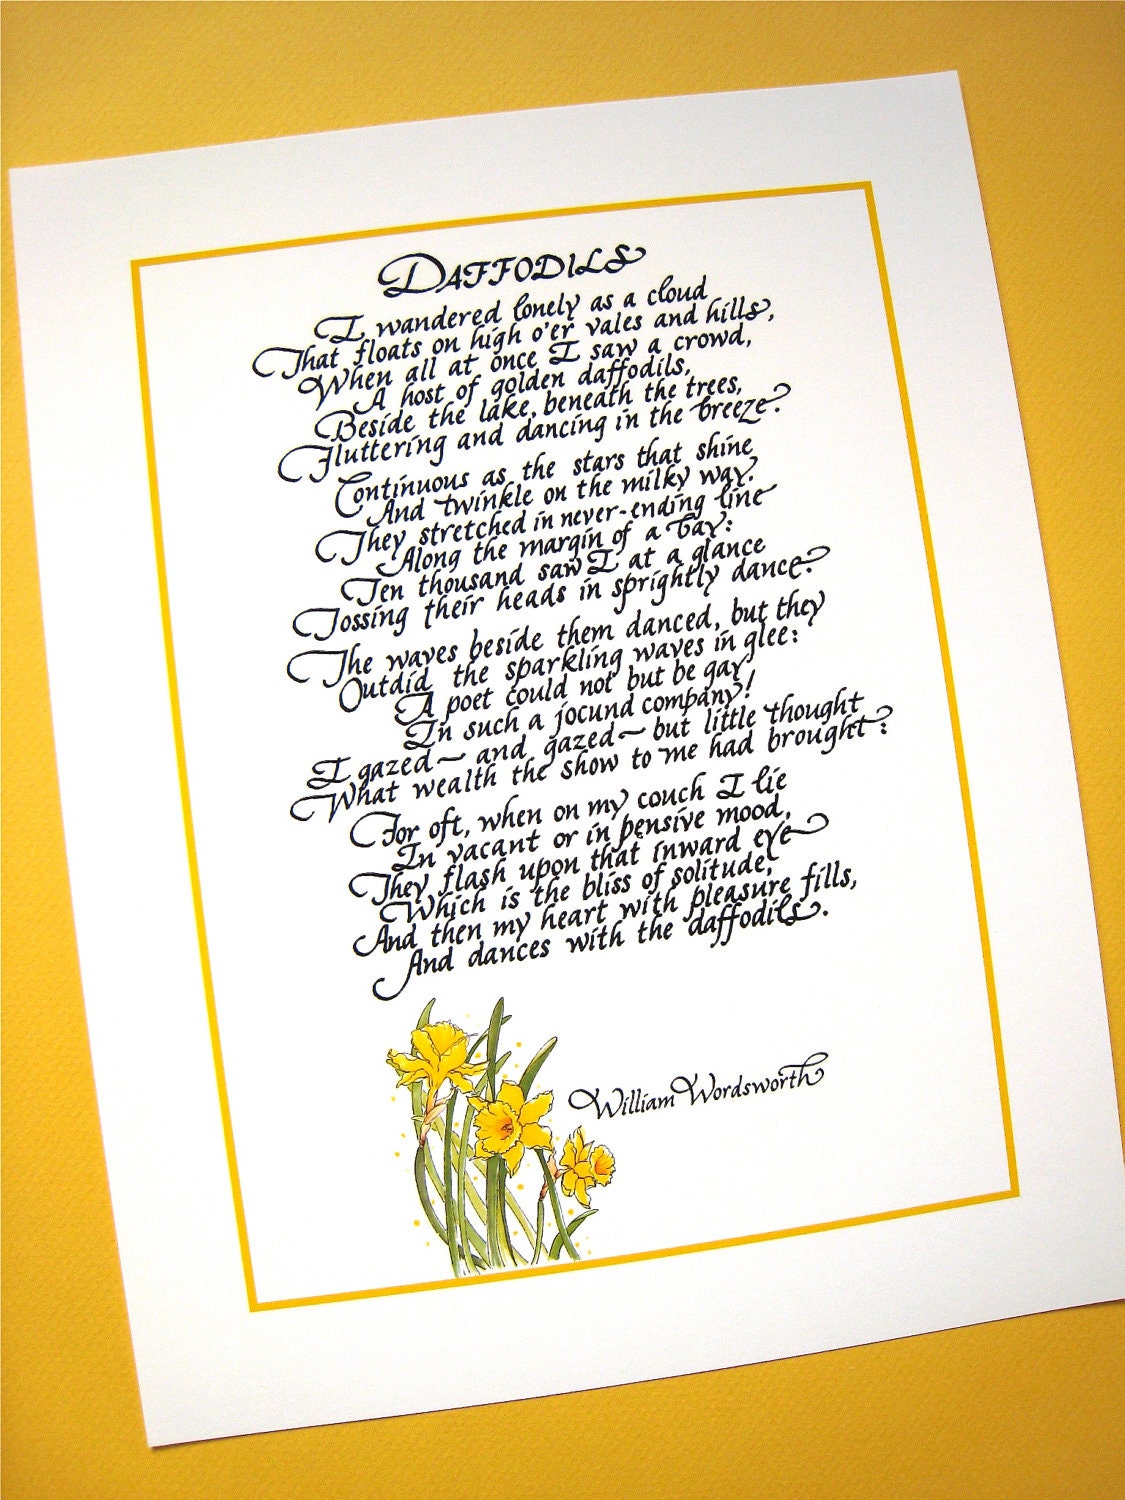 DAFFODILS
I wandered lonely as a cloud
That floats on high o'er vales and hills,
When all at once I saw a crowd,
A host of golden daffodils,
Beside the lake, beneath the trees,
Fluttering and dancing in the breeze.
Continuous as the stars that shine
And twinkle on the milky way.
They stretched in never-ending line
Along the margin of a bay:
Ten thousand saw I at a glance
Tossing their heads in sprightly dance.
The waves beside them danced, but they
Outdid the sparkling waves in glee:
A poet could not but be gay
In such a jocund company!
I gazed~ and gazed~ but little thought
What wealth the show to me had brought:
For oft, when on my couch I lie
In vacant or in pensive mood,
They flash upon that inward eye
Which is the bliss of solitude;
And then my heart with pleasure fills,
And dances with the daffodils.
William Wordsworth